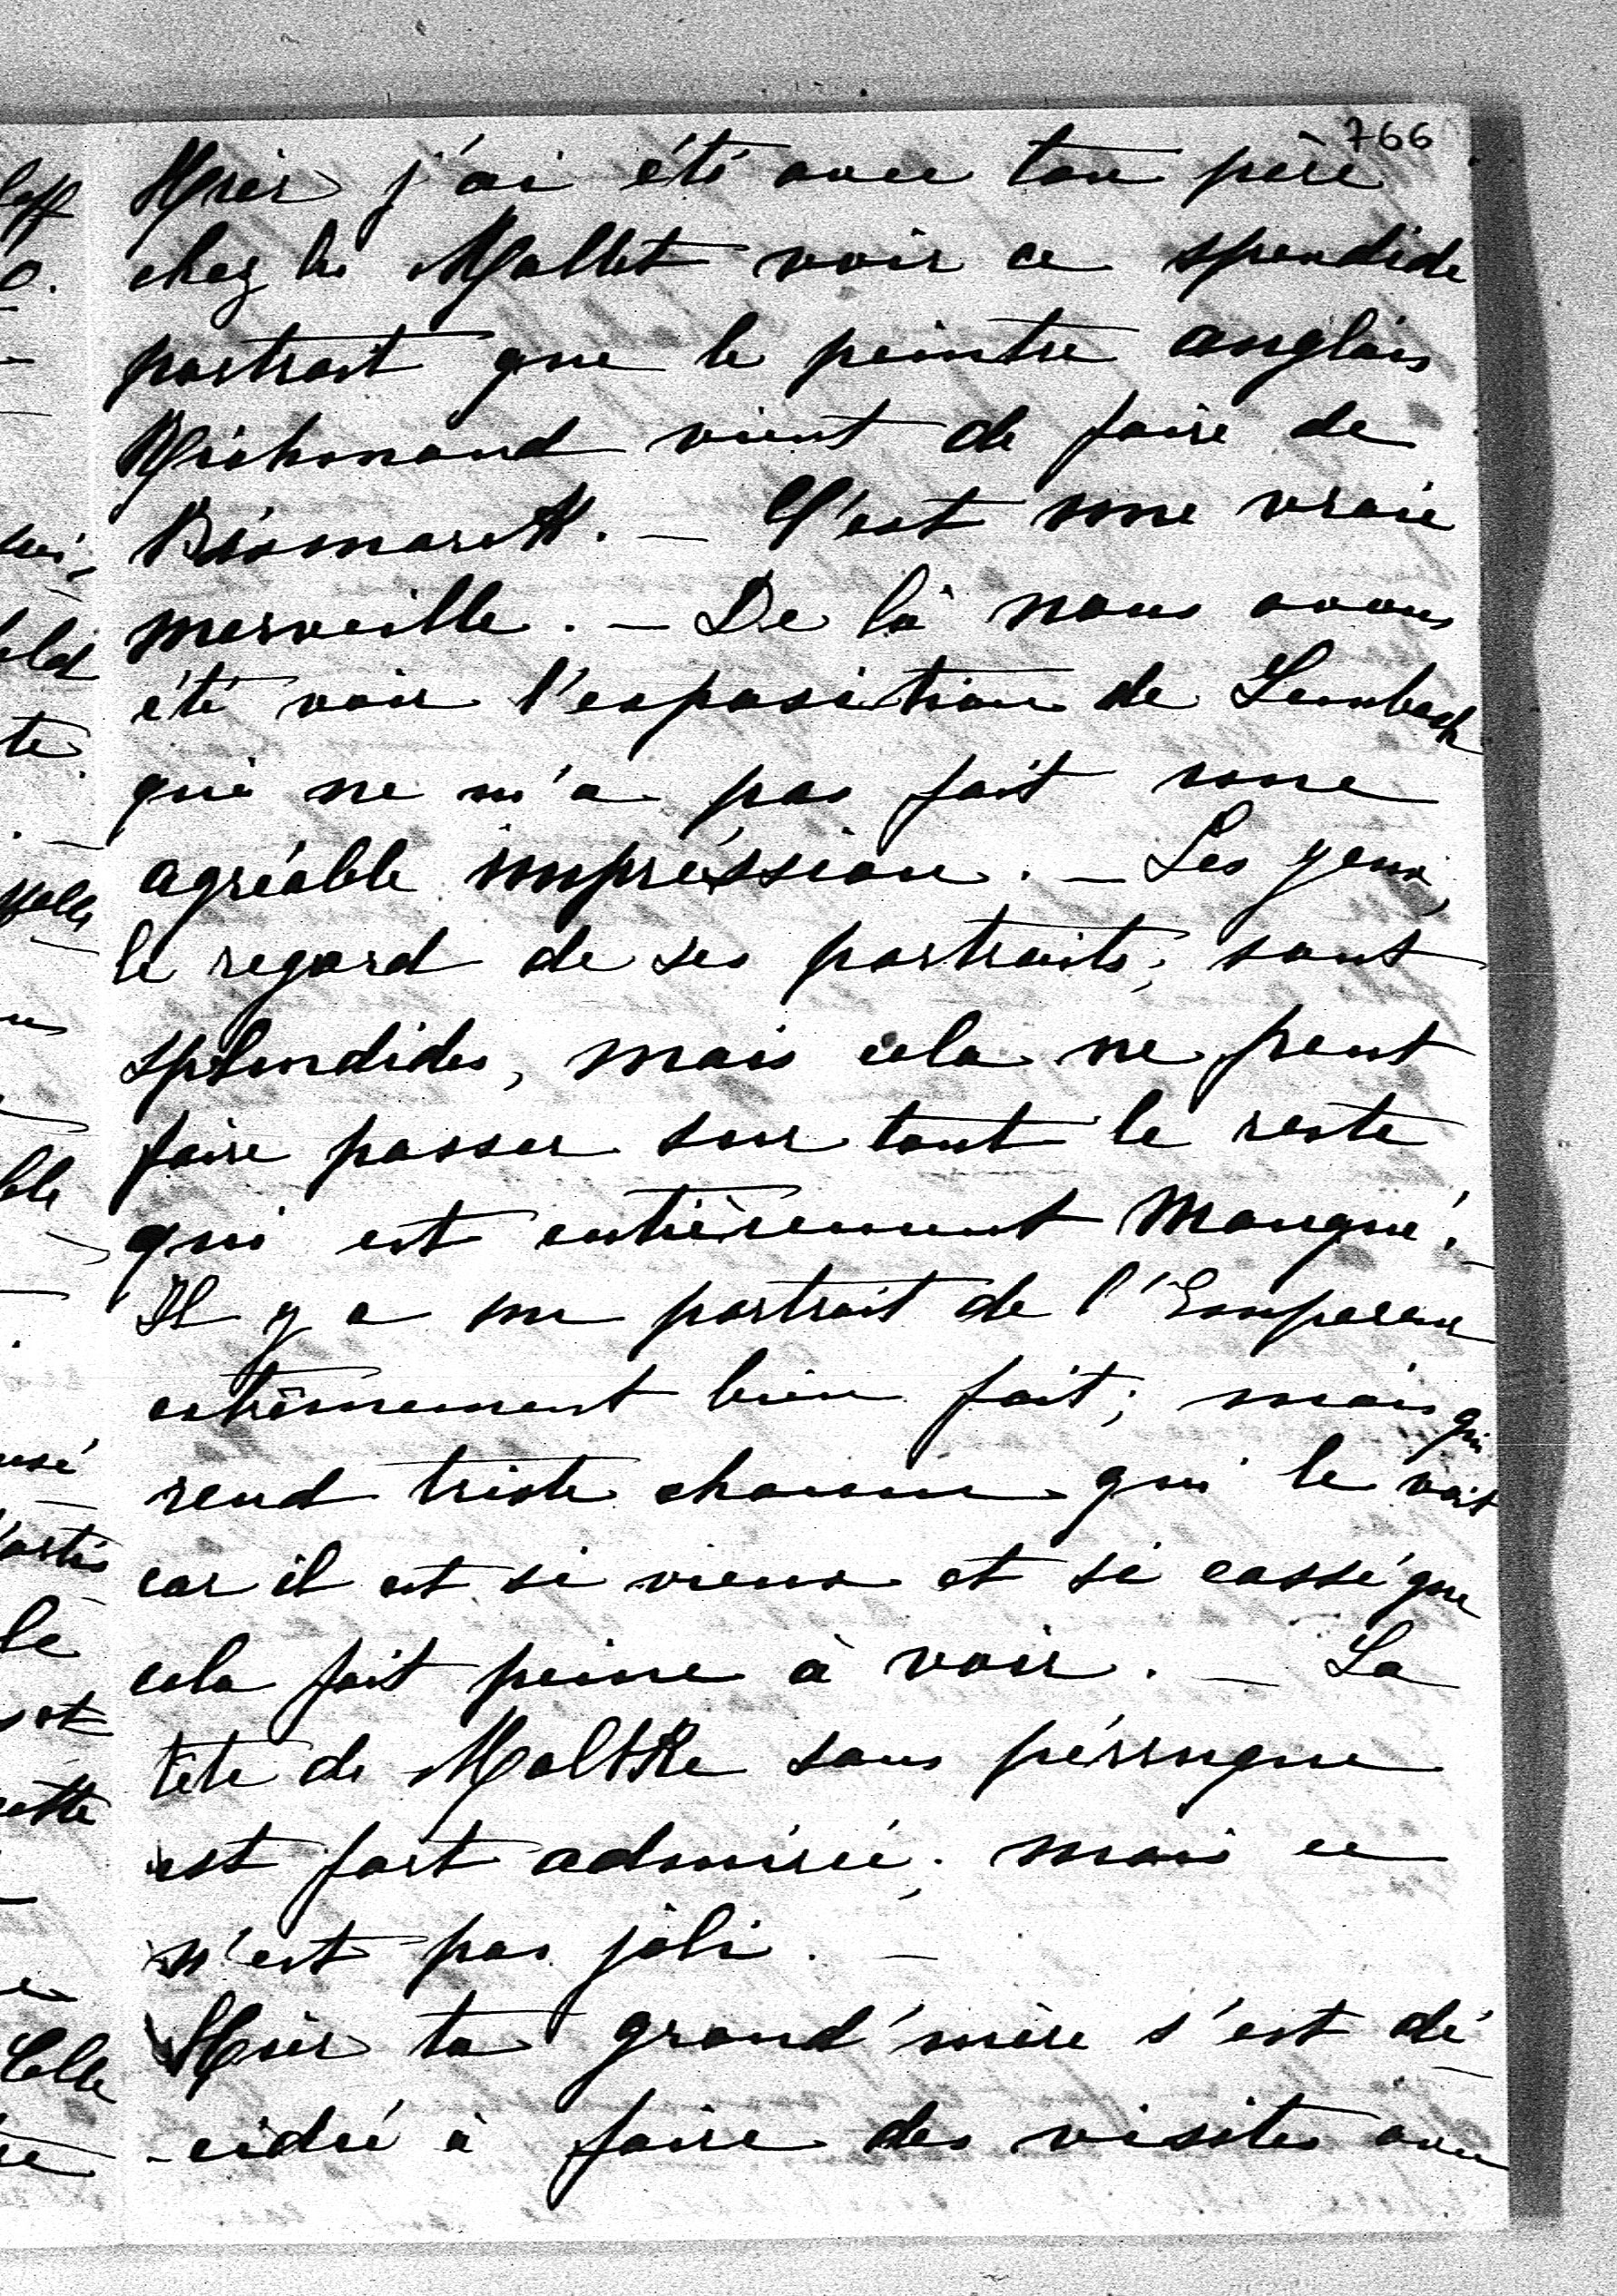 766
Hier j'ai été avec ton père
chez les Mallet voir ce spendide
portrait que le peintre anglais
Richmond vient de faire de
Bismarck. — C'est une vraie
merveille. — De là nous avons
été voir l'exposition de Lenbach
qui ne m'a pas fait une
agréable impréssion. — Les yeux,
le regard de ses portraits, sont
splendides, mais cela ne peut
faire passer sur tout le reste
qui est entièrement manqué. —
Il y a un portrait de l'Empereur
extrêmement bien fait; mais qui
rend triste chacun qui le voit
car il est si vieux et si cassé que
cela fait peine à voir. — La
tête de Moltke sans pérruque
est fort admirée; mais ce
n'est pas joli. —
Hier ta grand'mère s'est dé-
-cidée à faire des visites avec